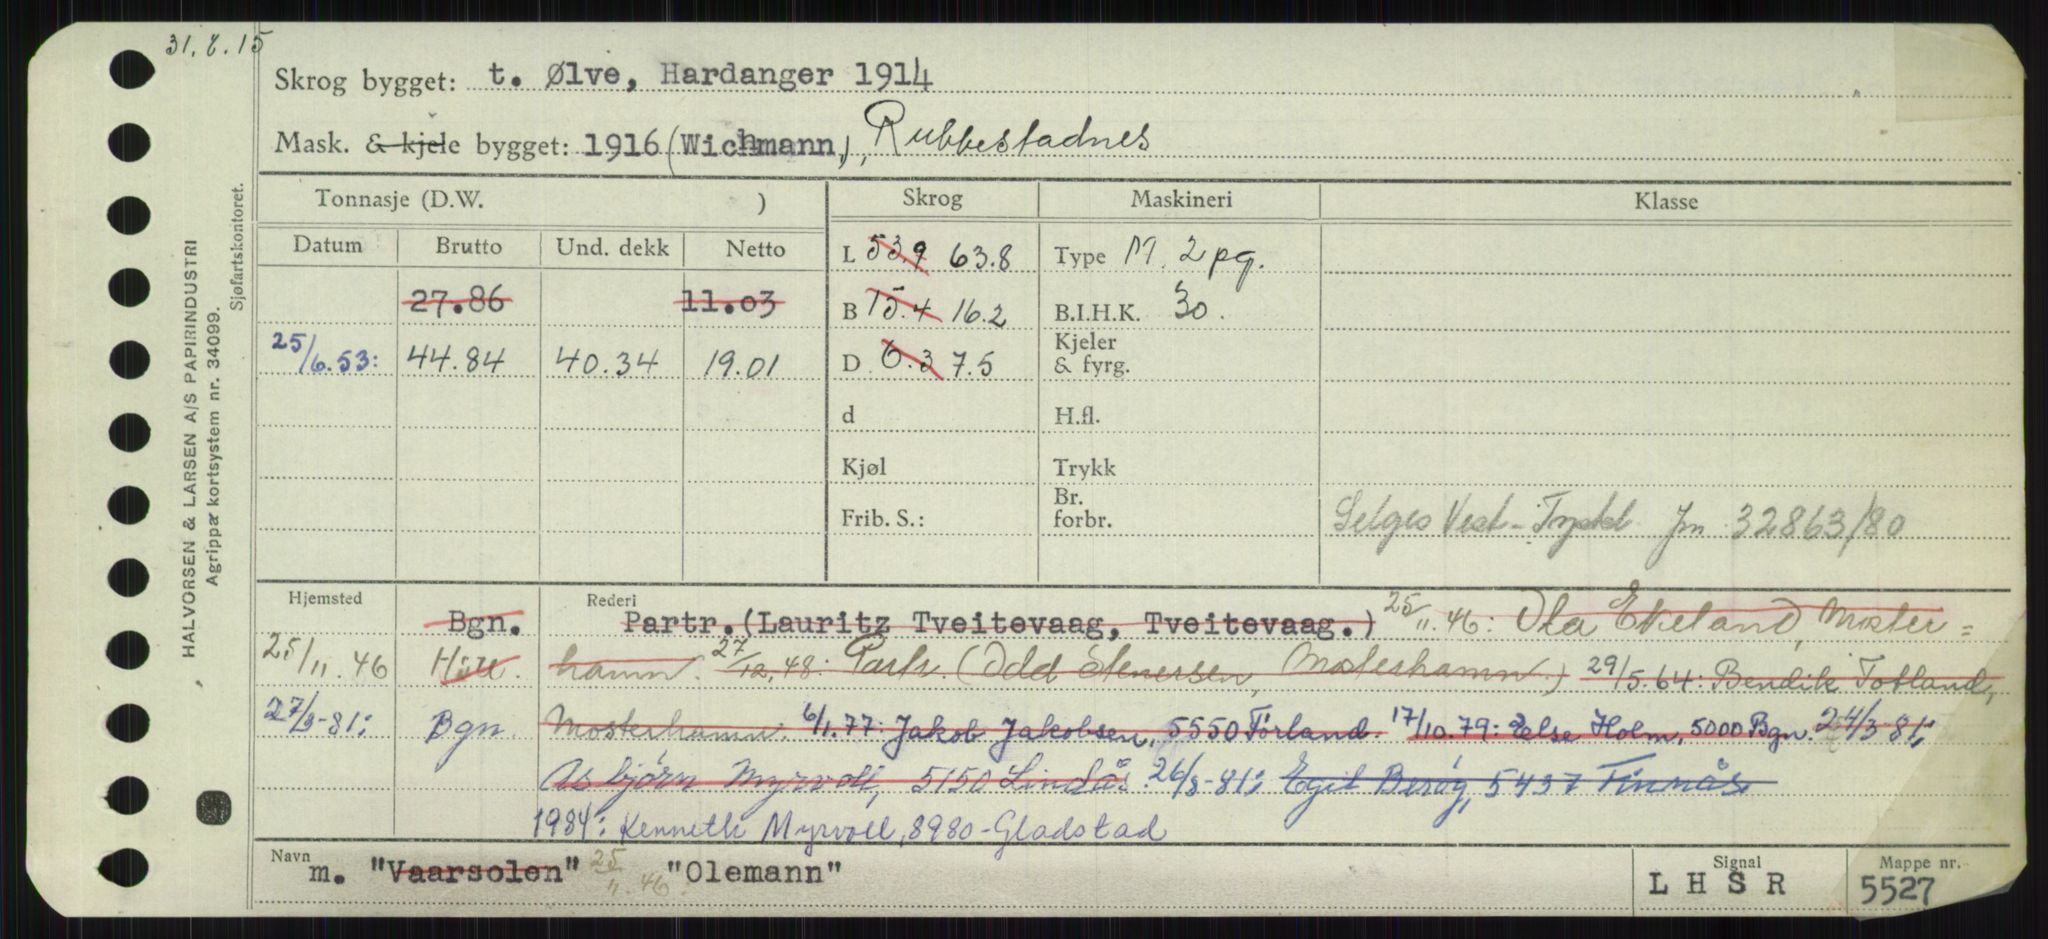 31.8.15
Skrog bygget: t. Ølve, Hardanger 1914
Mask. & kjele bygget: 1916 (Wichmann), Rubbestadnes
Tonnasje (D.W. ) Skrog Maskineri Klasse
Datum Brutto Und. dekk Netto
L 53,9 63.8 Type M. 2 pg.
27.86 11.03 B 15.4 16.2 B.I.H.K. 30.
25/6.53: 44.84 40.34 19.01 D 6.3 7.5 Kjeler & fyrg.
d H.fl.
Kjøl Trykk
Frib. S.: Br. forbr.
Selges Vest-Tyskl Jn 32863/80
HALVORSEN & LARSEN A/S PAPIRINDUSTRI
Agrippa kortsystem nr. 34099.
Sjøfartskontoret.
Hjemsted Rederi
Bgn. Partr.(Lauritz Tveitevaag, Tveitevaag.) 25/11.46: Ola Ekeland, Moster=
25/11.46 hamn. 27/12.48: Partr. (Odd Stenersen, Mosterhamn.) 29/5.64: Bendik Totland,
27/3-81: Bgn. Mosterhamn. 6/1.77: Jakob Jakobsen, 5550 Förland. 17/10.79: Else Holm, 5000 Bgn. 24/3-81;
Asbjörn Myrvoll, 5150 Lindås. 26/3-81; Egil Beröy, 5437 Finnås
1984: Kenneth Myrvoll, 8980-Gladstad
Navn m. "Vaarsolen" 25/11.46: "Olemann"
Signal LHSR
Mappe nr. 5527